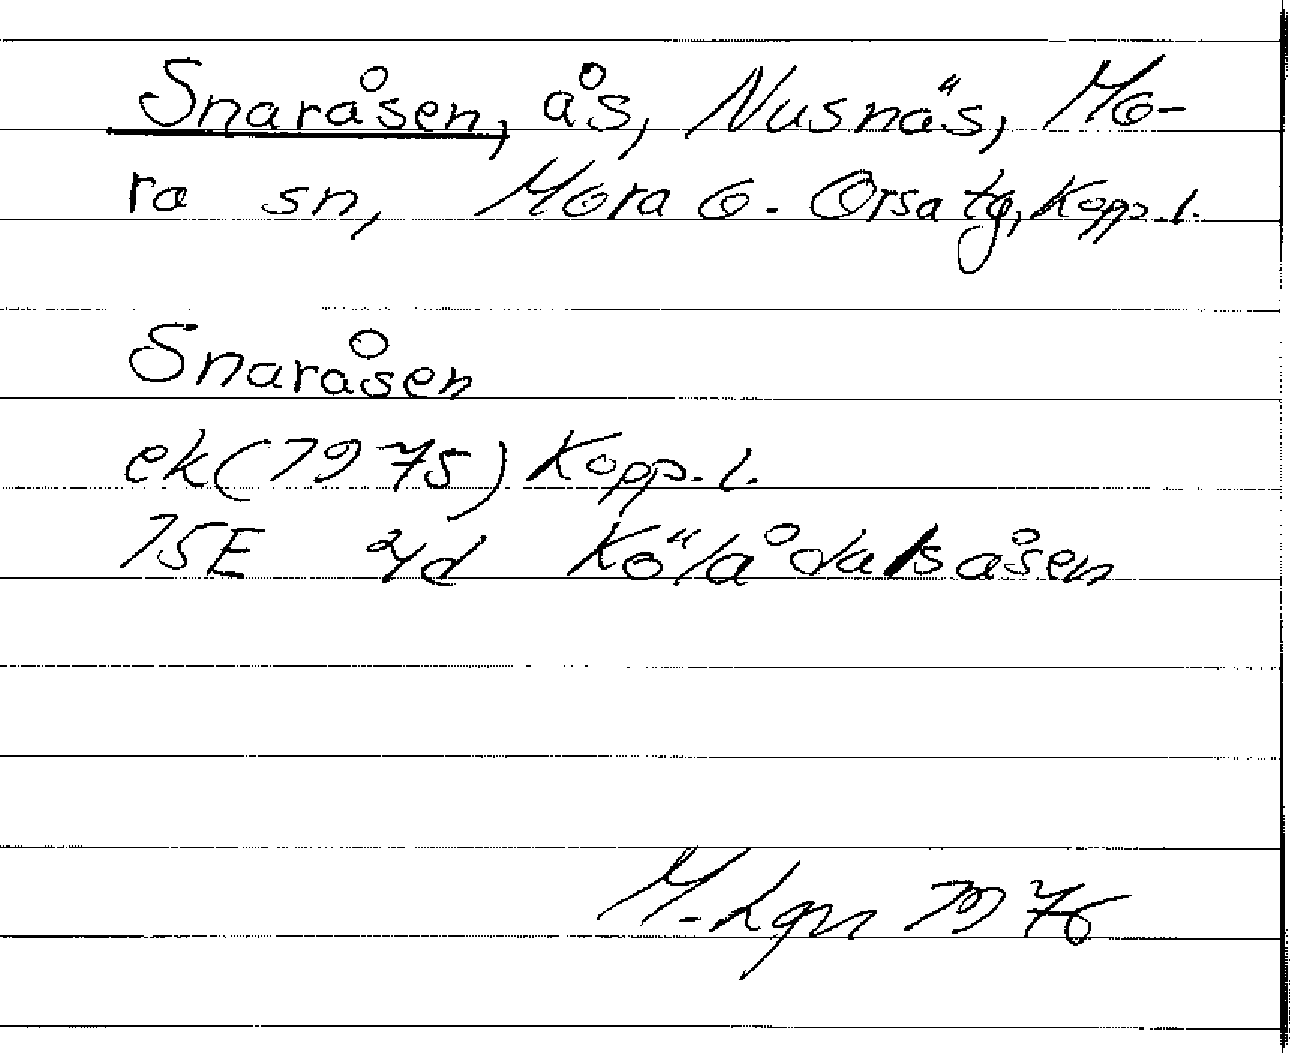 Snaråsen, ås, Nusnäs, Mo-
ra sn, Mora o. Orsa tg, Kopp. l.
Snaråsen
ek (1975) Kopp. l.
15E 4d Kölådalsåsen
M. Lgn 1976